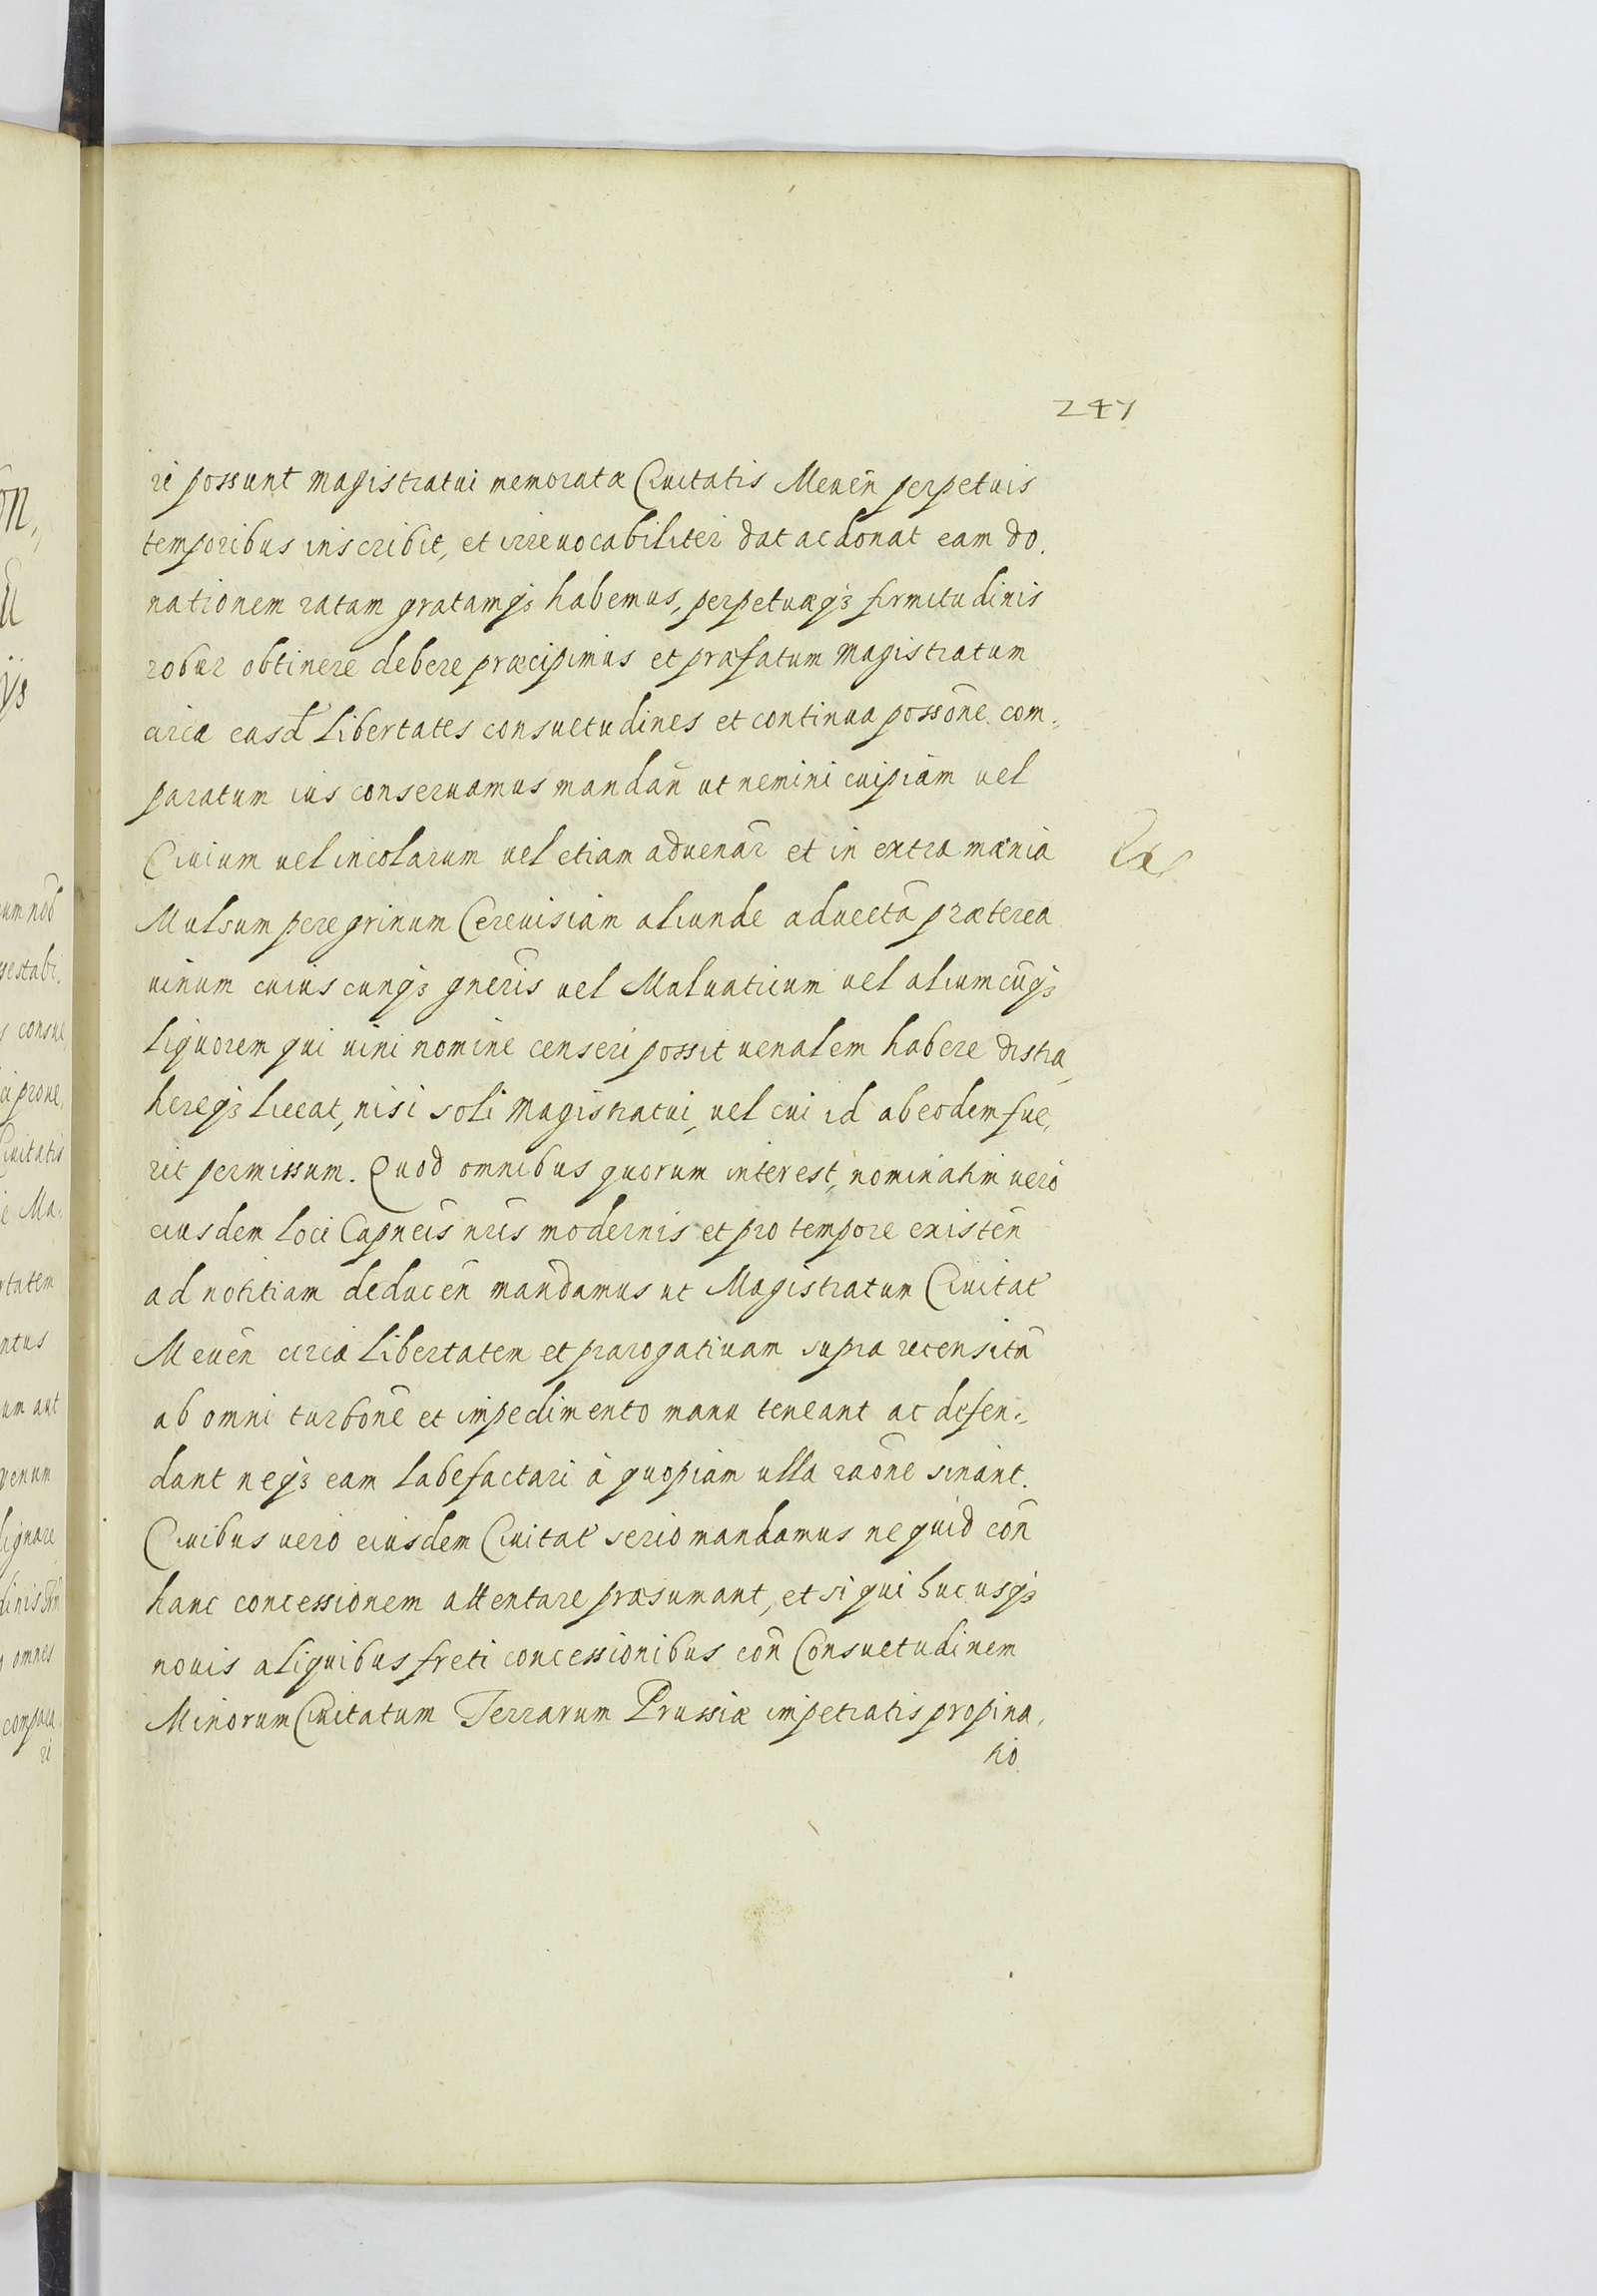 247
ri possunt magistratui memoratæ Ciuitatis Meuēn perpetuis
temporibus inscribit, et irreuocabiliter dat ac donat eam do,
nationem ratam gratamq́ꝫ habemus, perpetuæq́ꝫ firmitudinis
robur obtinere debere præcipimus et præfatum magistratum
circa easd̃ libertates consuetudines et continua possōne com,,
paratum ius conseruamus mandañ ut nemini cuipiam uel
Ciuium uel incolarum uel etiam aduenar̃ et in extra mænia
Mulsum peregrinum Cereuisiam aliunde aduectā præterea
uinum cuiuscunq́ꝫ gnēris uel Maluaticum uel aliumcūq́ꝫ
liquorem qui uini nomine censeri possit uenalem habere distra,
hereq́ꝫ liceat, nisi soli magistratui, uel cui id ab eodem fue,
rit permissum. Quod omnibus quorum interest, nominatim uero
eiusdem loci Capneis nr̃is modernis et pro tempore existēn
ad notitiam deducēn mandamus ut Magistratum Ciuitat
Meuēn circa libertatem et prærogatiuam supra recensitā
ab omni turbōne et impedimento manu teneant ac defen,,
dant neq́ꝫ eam labefactari à quopiam ulla raōne sinant.
Ciuibus uero eiusdem Ciuitat serio mandamus ne quid coñ
hanc concessionem attentare præsumant, et si qui hucusq́ꝫ
nouis aliquibus freti concessionibus coñ Consuetudinem
Minorum Ciuitatum Terrarum Prussiæ impetratis propina,
tio